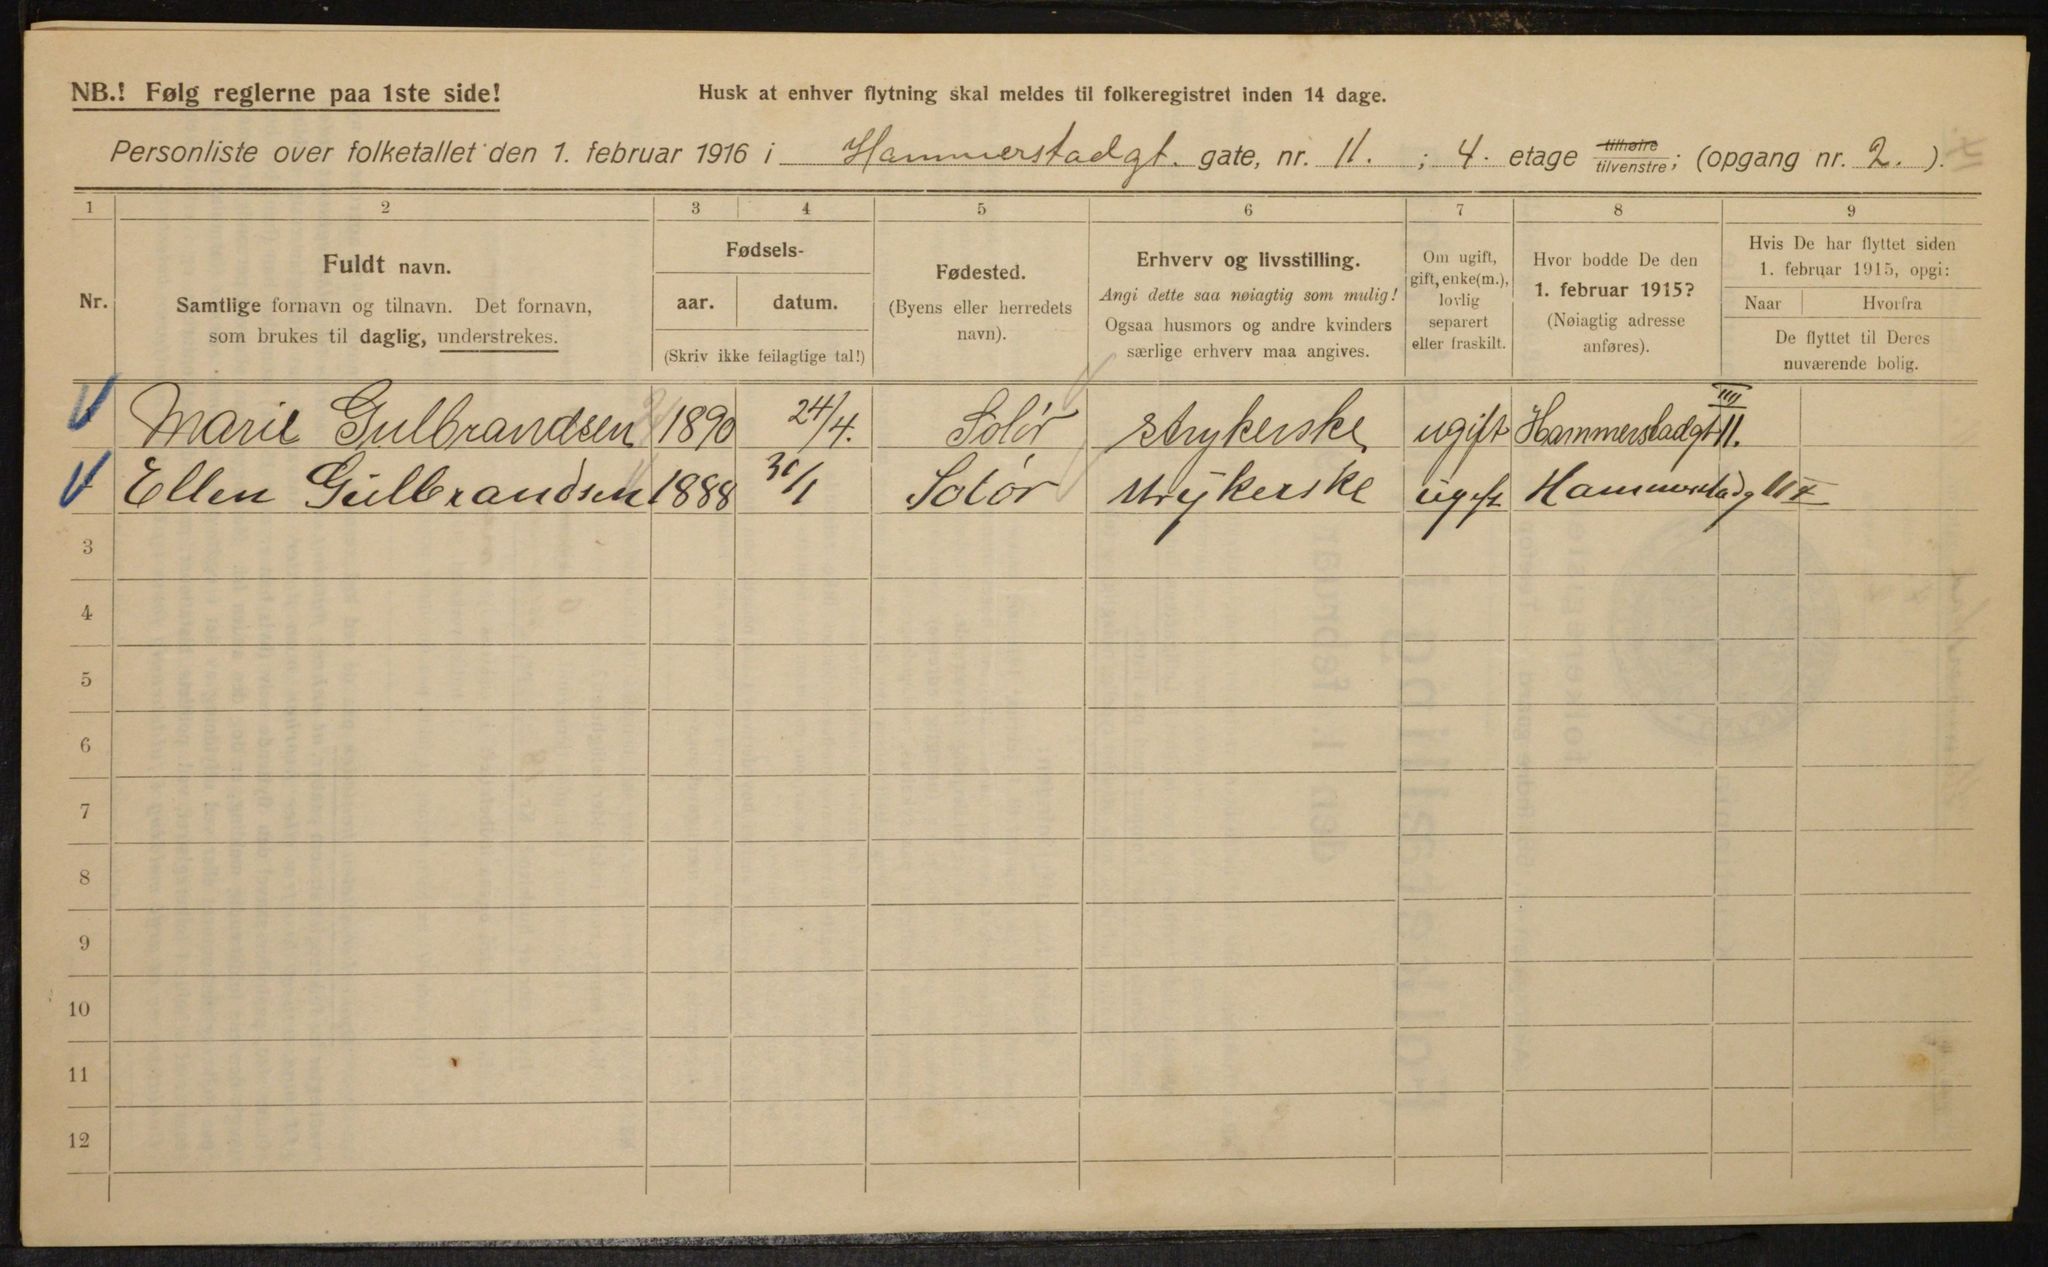 NB.! Følg reglerne paa 1ste side!
Husk at enhver flytning skal meldes til folkeregistret inden 14 dage.
Personliste over folketallet den 1. februar 1916 i Hammerstadgt. gate, nr. 11. ; 4. etage tilhøire tilvenstre; (opgang nr. 2. ).
1 2 3 4 5 6 7 8 9
Nr.
Fuldt navn.
Samtlige fornavn og tilnavn. Det fornavn,
som brukes til daglig, understrekes.
Fødsels-
aar. datum.
(Skriv ikke feilagtige tal!)
Fødested.
(Byens eller herredets
navn).
Erhverv og livsstilling.
Angi dette saa nøiagtig som mulig!
Ogsaa husmors og andre kvinders
særlige erhverv maa angives.
Om ugift,
gift, enke(m.),
lovlig
separert
eller fraskilt.
Hvor bodde De den
1. februar 1915?
(Nøiagtig adresse
anføres).
Hvis De har flyttet siden
1. februar 1915, opgi:
Naar Hvorfra
De flyttet til Deres
nuværende bolig.
Marie Gulbrandsen 1890 24/4. Solør strykerske ugift Hammerstadgt 11. IIII
Ellen Gulbrandsen 1888 30/1 Solør strykerske ugift Hammerstadg 11
3
4
5
6
7
8
9
10
11
12